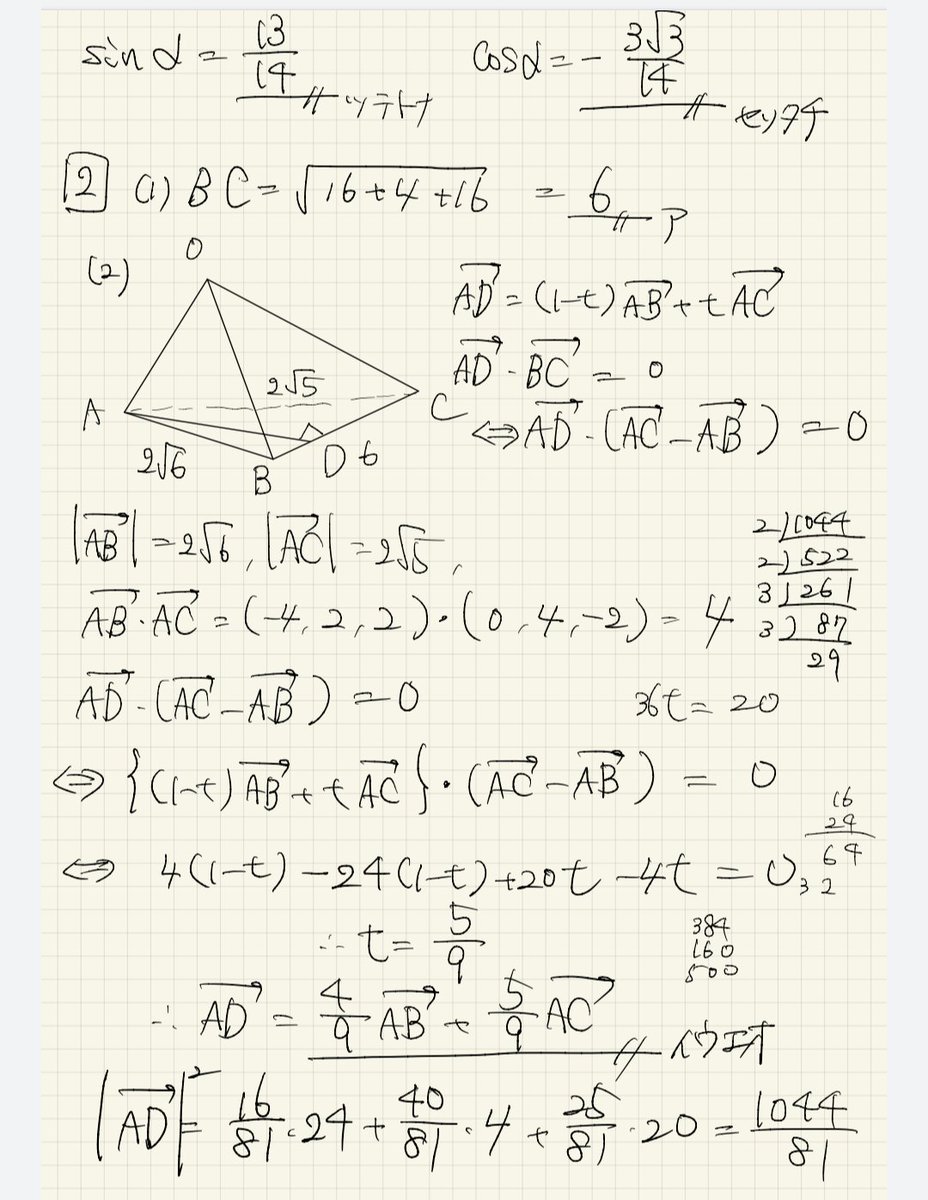 sinα = 13/14 ツテトナ cosα = - 3√3/14 セソタチ
2 (1) BC = √16+4+16 = 6 ア
(2) O
A B C D 2√5 2√6 6
AD = (1-t)AB + tAC
AD・BC = 0
⇔ AD・(AC - AB) = 0
|AB| = 2√6, |AC| = 2√5,
AB・AC = (-4, 2, 2)・(0, 4, -2) = 4
2)1044
2)522
3)261
3)87
29
AD・(AC - AB) = 0 36t = 20
⇔ {(1-t)AB + tAC}・(AC - AB) = 0
16
24
64
32
⇔ 4(1-t) - 24(1-t) + 20t - 4t = 0
∴ t = 5/9
384
160
500
∴ AD = 4/9 AB + 5/9 AC イウエオ
|AD|² = 16/81・24 + 40/81・4 + 25/81・20 = 1044/81